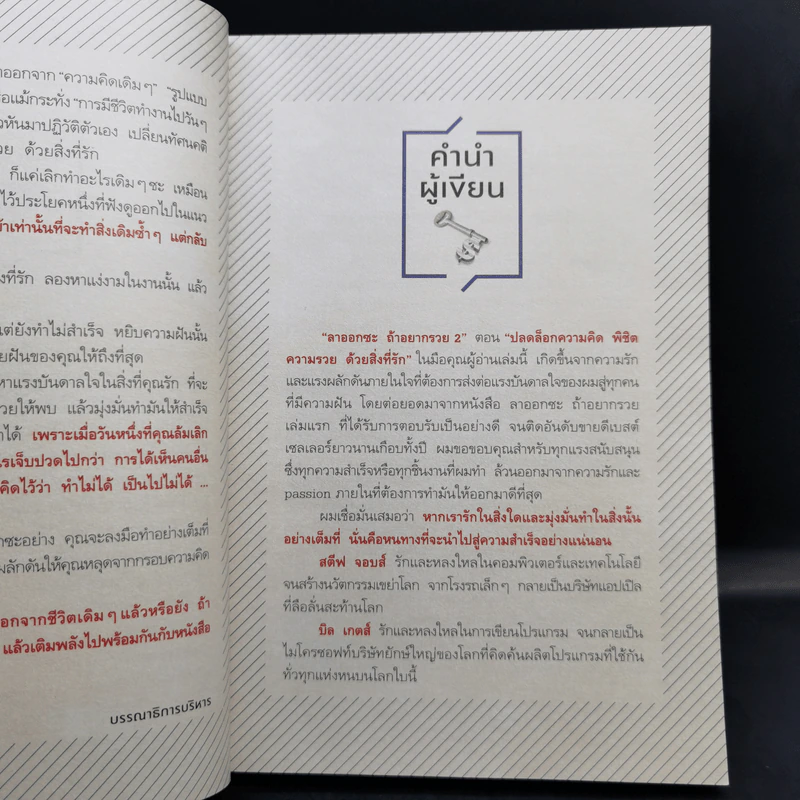 าออกจาก “ความคิดเดิมๆ” “รูปแบบ
อแม้กระทั่ง “การมีชีวิตทำงานไปวันๆ
หันมาปฏิวัติตัวเอง เปลี่ยนทัศนคติ
วย ด้วยสิ่งที่รัก
ก็แค่เลิกทำอะไรเดิมๆซะ เหมือน
ไว้ประโยคหนึ่งที่ฟังดูออกไปในแนว
าเท่านั้นที่จะทำสิ่งเดิมซ้ำๆ แต่กลับ
งที่รัก ลองหาแง่งามในงานนั้น แล้ว
แต่ยังทำไม่สำเร็จ หยิบความฝันนั้น
ยฝันของคุณให้ถึงที่สุด
หาแรงบันดาลใจในสิ่งที่คุณรัก ที่จะ
วยให้พบ แล้วมุ่งมั่นทำมันให้สำเร็จ
าได้ เพราะเมื่อวันหนึ่งที่คุณล้มเลิก
ไรเจ็บปวดไปกว่า การได้เห็นคนอื่น
คิดไว้ว่า ทำไม่ได้ เป็นไปไม่ได้ ...
ักซะอย่าง คุณจะลงมือทำอย่างเต็มที่
ผลักดันให้คุณหลุดจากกรอบความคิด
ออกจากชีวิตเดิมๆแล้วหรือยัง ถ้า
แล้วเติมพลังไปพร้อมกันกับหนังสือ
บรรณาธิการบริหาร
คำนำ
ผู้เขียน
“ลาออกซะ ถ้าอยากรวย 2” ตอน “ปลดล็อกความคิด พิชิต
ความรวย ด้วยสิ่งที่รัก” ในมือคุณผู้อ่านเล่มนี้ เกิดขึ้นจากความรัก
และแรงผลักดันภายในใจที่ต้องการส่งต่อแรงบันดาลใจของผมสู่ทุกคน
ที่มีความฝัน โดยต่อยอดมาจากหนังสือ ลาออกซะ ถ้าอยากรวย
เล่มแรก ที่ได้รับการตอบรับเป็นอย่างดี จนติดอันดับขายดีเบสต์
เซลเลอร์ยาวนานเกือบทั้งปี ผมขอขอบคุณสำหรับทุกแรงสนับสนุน
ซึ่งทุกความสำเร็จหรือทุกชิ้นงานที่ผมทำ ล้วนออกมาจากความรักและ
passion ภายในที่ต้องการทำมันให้ออกมาดีที่สุด
ผมเชื่อมั่นเสมอว่า หากเรารักในสิ่งใดและมุ่งมั่นทำในสิ่งนั้น
อย่างเต็มที่ นั่นคือหนทางที่จะนำไปสู่ความสำเร็จอย่างแน่นอน
สตีฟ จอบส์ รักและหลงใหลในคอมพิวเตอร์และเทคโนโลยี
จนสร้างนวัตกรรมเขย่าโลก จากโรงรถเล็กๆ กลายเป็นบริษัทแอปเปิล
ที่ลือลั่นสะท้านโลก
บิล เกตส์ รักและหลงใหลในการเขียนโปรแกรม จนกลายเป็น
ไมโครซอฟท์บริษัทยักษ์ใหญ่ของโลกที่คิดค้นผลิตโปรแกรมที่ใช้กัน
ทั่วทุกแห่งหนบนโลกใบนี้